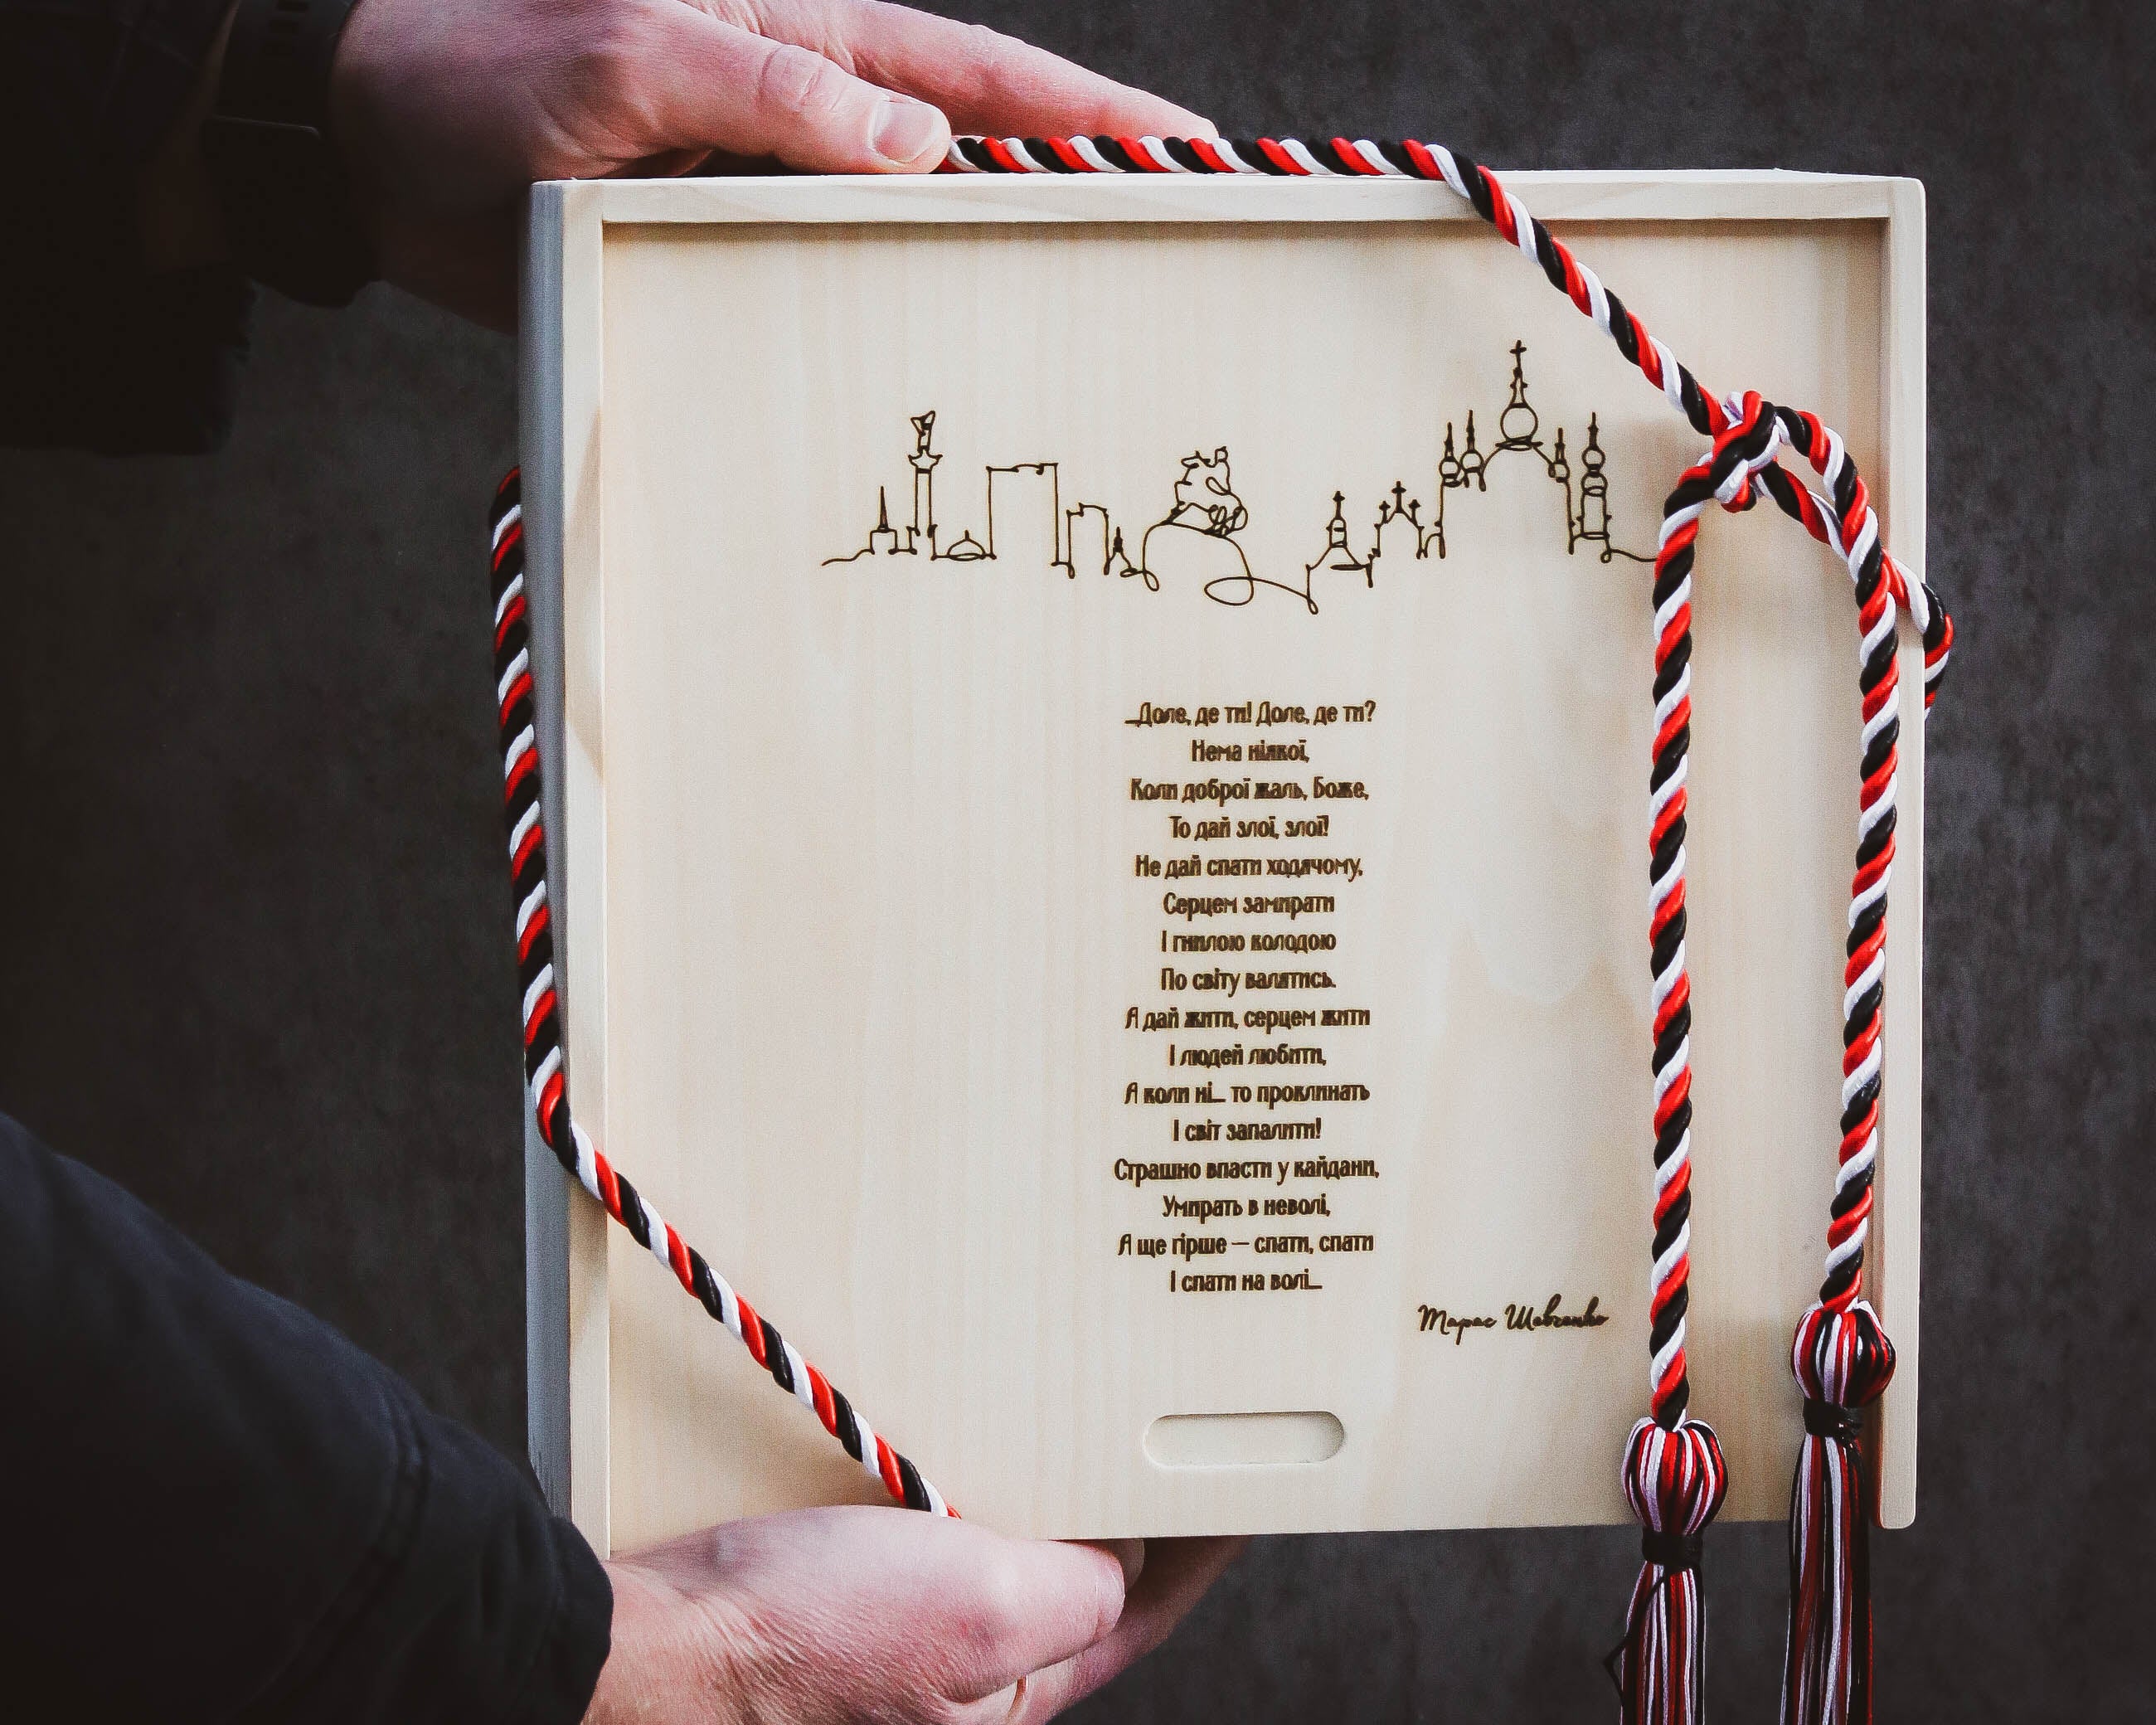 ...Доле, де ти! Доле, де ти?
Нема ніякої,
Коли доброї жаль, Боже,
То дай злої, злої!
Не дай спати ходячому,
Серцем замирати
І гнилою колодою
По світу валятись.
А дай жити, серцем жити
І людей любити,
А коли ні... то проклинать
І світ запалити!
Страшно впасти у кайдани,
Умирать в неволі,
А ще гірше — спати, спати
І спати на волі...
Тарас Шевченко